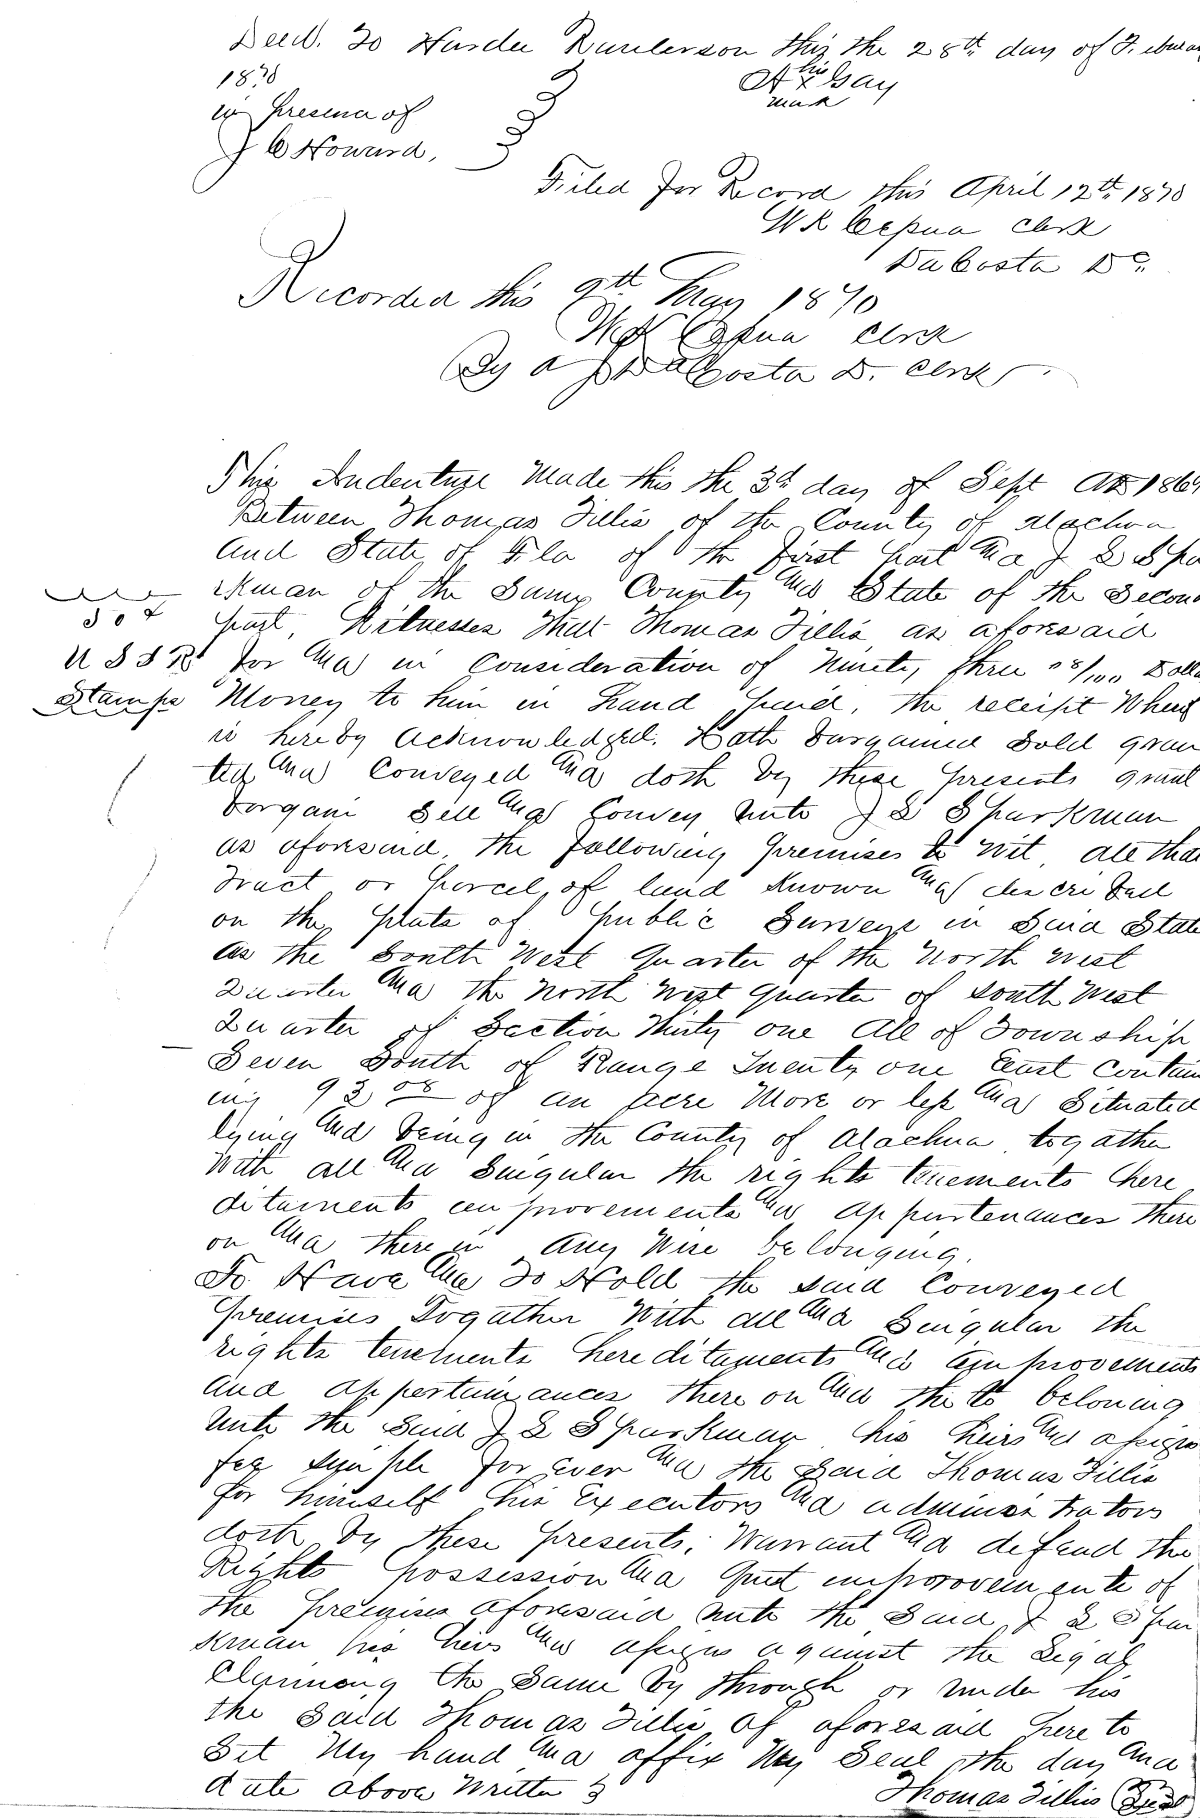 Deed. To Hardee Raulerson this the 28th day of Februa
1870
his
A x Gay
mark
in presence of
J C Howard,
Filed for Record this April 12th 1870
W K Cessna Clerk
DaCosta DC.
Recorded this 9th May 1870
W K Cessna Clerk
By A J DaCosta D. Clerk
This Indenture Made this the 3d day of Sept AD 1869
Between Thomas Tillis of the County of Alachua
and State of Fla of the first part and J S Spa
rkman of the Same County and State of the Second
part, Witnesses that Thomas Tillis as aforesaid
for and in Consideration of Ninety three 08/100 Dolla
50 ¢
U S I R
Stamps
Money to him in hand paid, the receipt Where
is hereby acknowledged. Hath bargained Sold gran
ted and Conveyed and doth by these presents grant
bargain Sell and Convey unto J S Sparkman
as aforesaid, the following premises to wit all that
Tract or parcel of land Known and described
on the plats of public Surveys in Said State
as the South West Quarter of the North West
Quarter and the North West quarter of South West
Quarter of Section Thirty one all of Township
Seven South of Range Twenty one East contain
ing 93 08 of an acre More or less and Situated
lying and being in the County of Alachua togather
With all and Singular the rights tenements here
ditaments improvements and appurtenances there
on and there in any Wise belonging.
To Have and To Hold the said Conveyed
premises Togather With all and Singular the
rights tenements hereditaments and improvements
and appertainances there on and the to beloning
unto the Said J S Sparkman his heirs and assigns
fee simple for ever and the Said Thomas Tillis
for himself his Executors and administrators
doth by these presents, Warrant and defend the
Rights possession and quet improovements of
the premises aforesaid unto the Said J S Spar
kman his heirs and assigns against the Legal
Claiming the Same by through or under his
the Said Thomas Tillis of aforesaid here to
Set My hand and affix My Seal the day and
date above Written
Thomas Tillis Seal